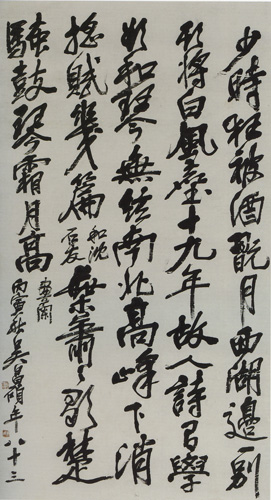 少時狂被酒翫月西湖邊一別
將白風塵十九年故人詩學
和琴無弦南北高峰下消
搖賦幾篇和沈石友葉歌楚
騷鼓琴霜月高
丙寅秋吳昌碩年八十三